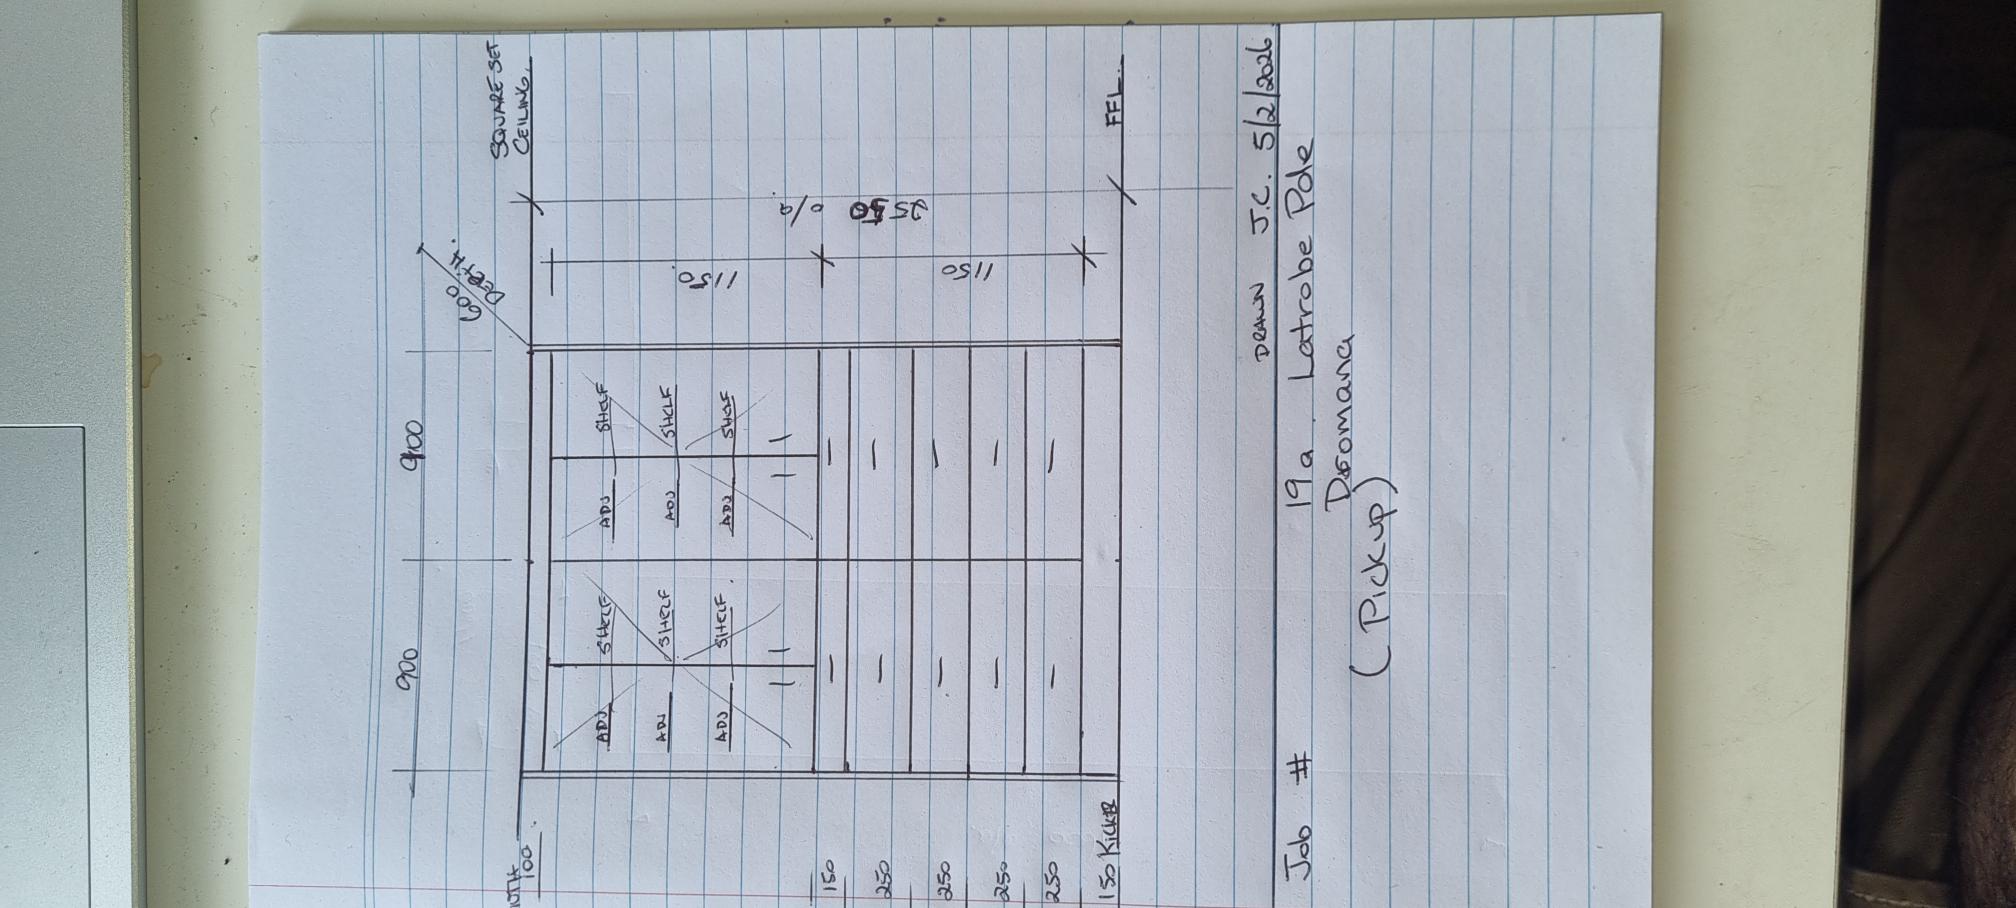 900
900
600
DEPTH.
SQUARE SET
CEILING.
100
ADJ SHELF
ADJ SHELF
ADJ SHELF
ADJ SHELF
ADJ SHELF
ADJ SHELF
1150
1150
2550 o/a
150
250
250
250
250
150 KICKER
FFL.
DRAWN J.C. 5/2/2026
Job # 19a Latrobe Pde
Dromana
(Pickup)